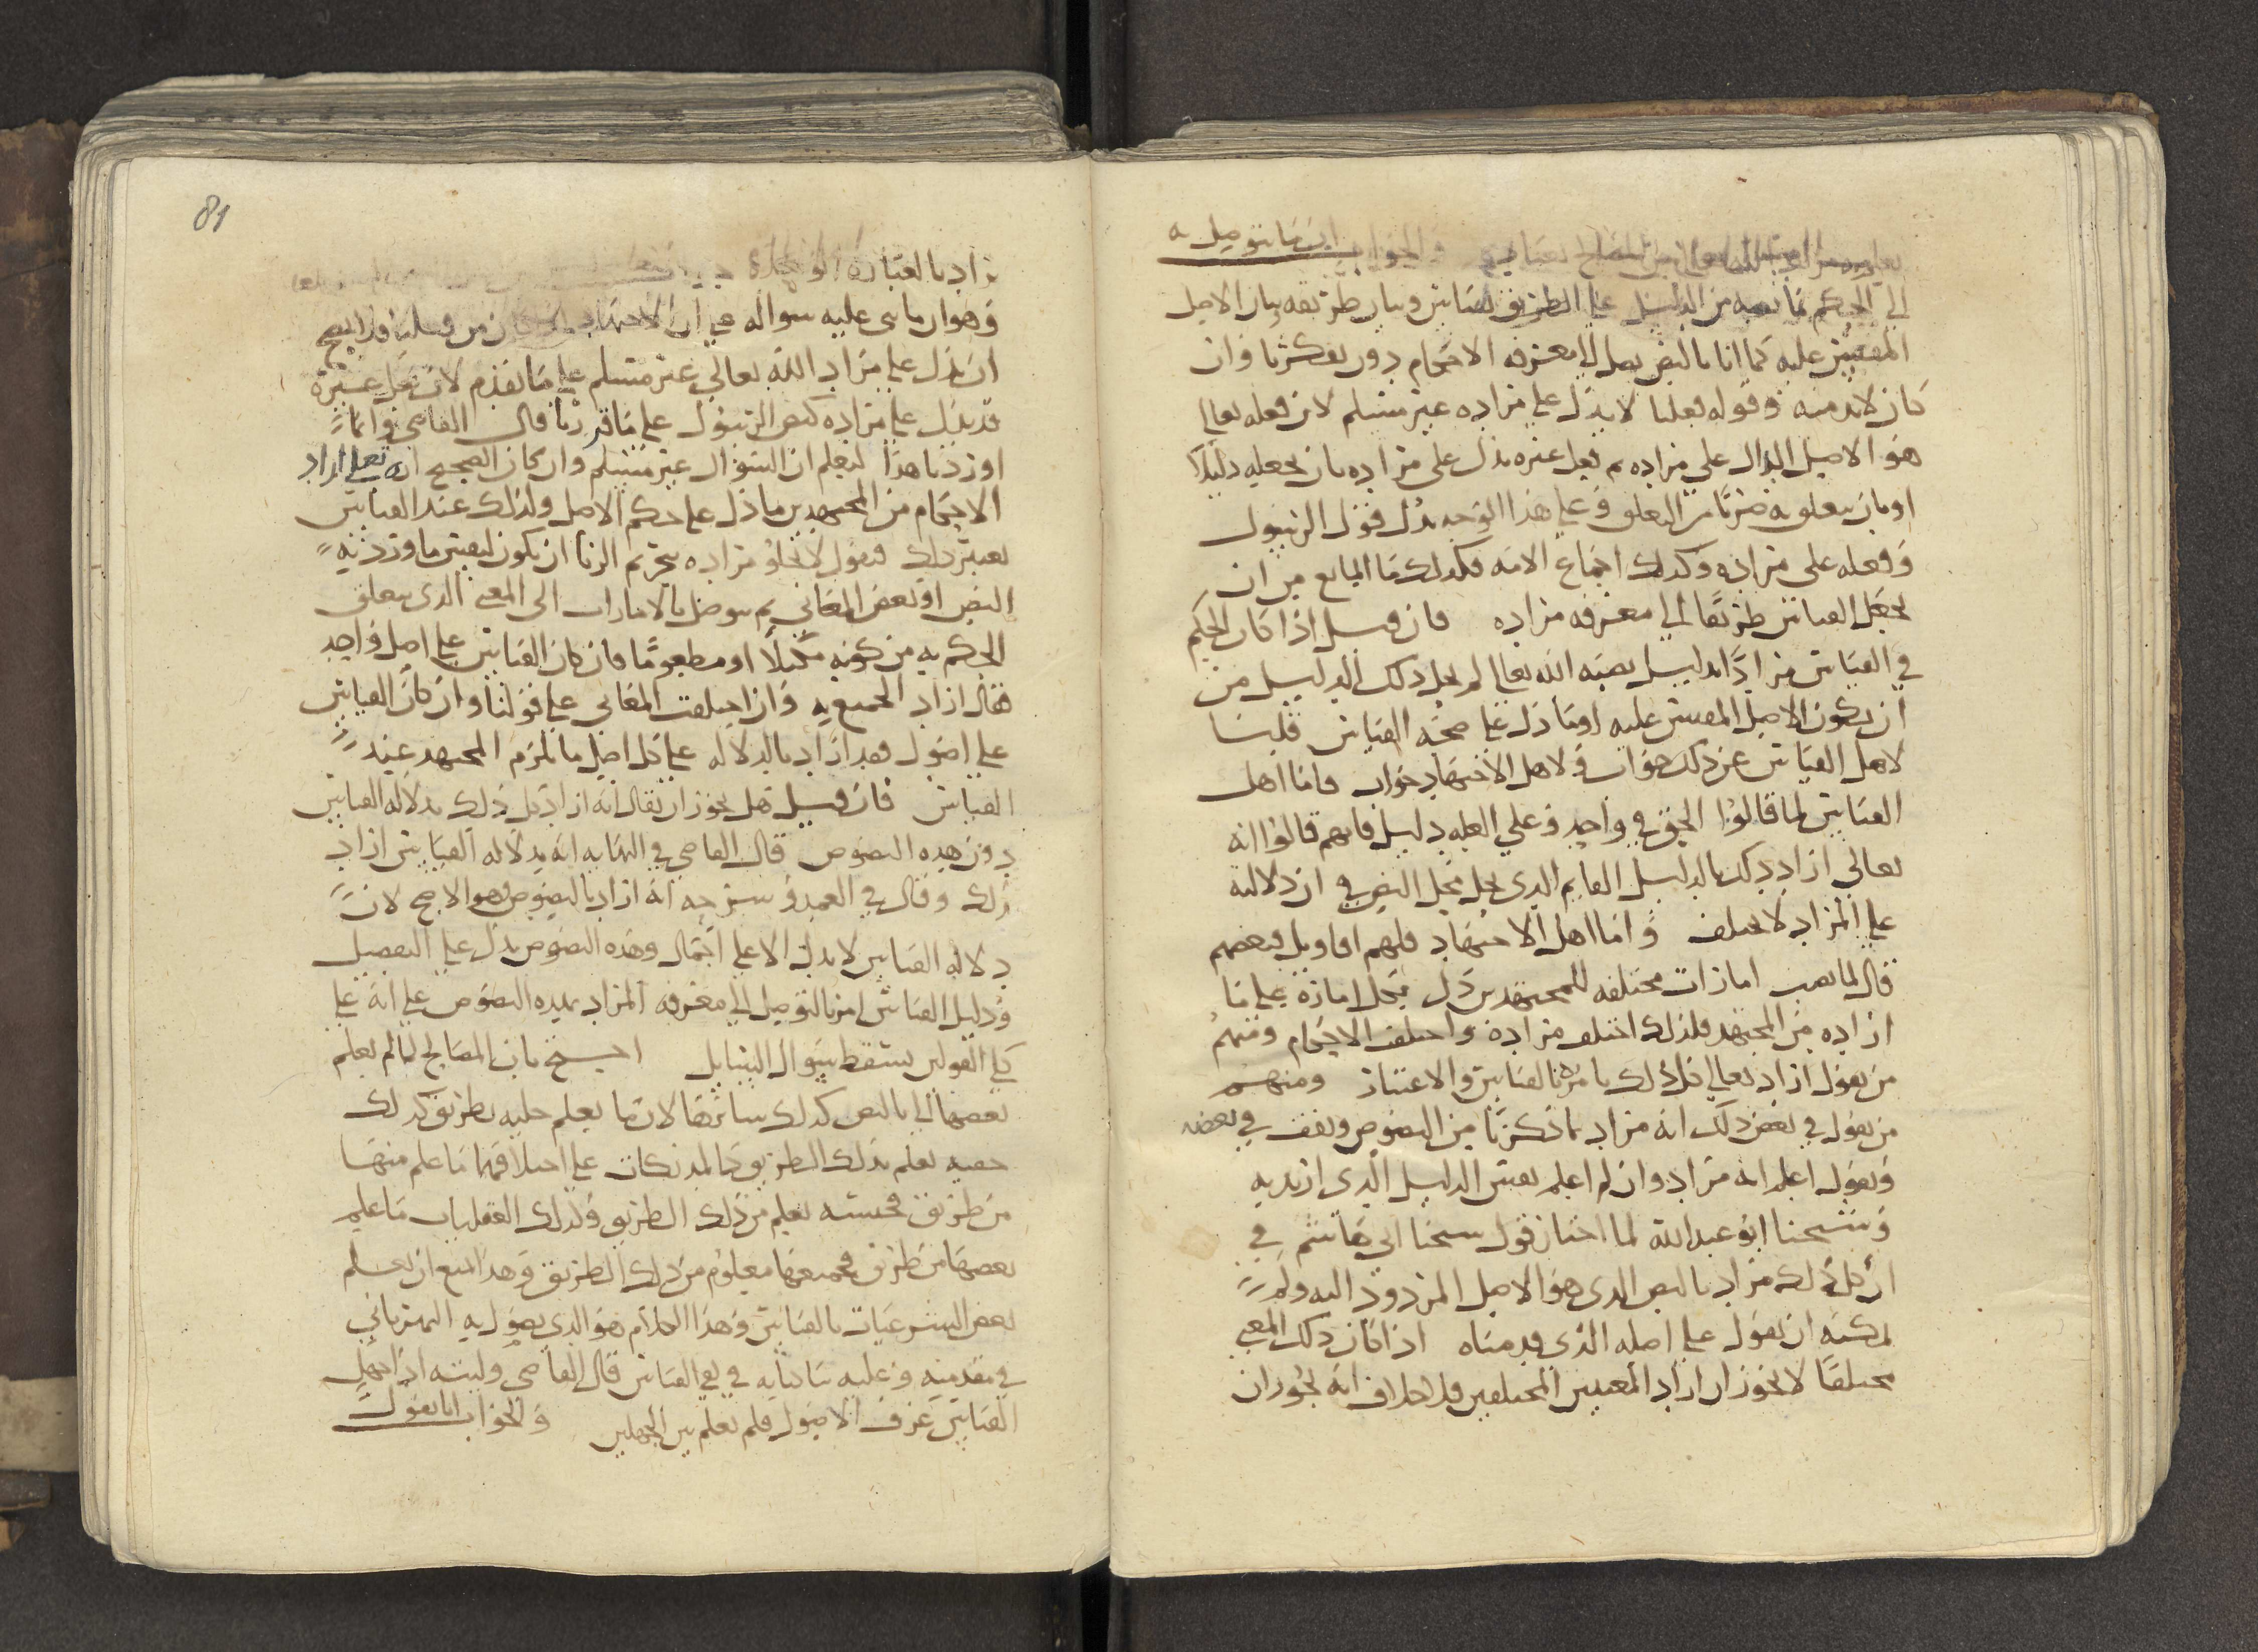 والجواب انما نتوصل به
الى الحكم بما نصبه من الدليل على الطريق القياس وبيان طريقه بيان الاصل
المقيس عليه كما انا بالنص نصل الى معرفة الاحكام دون تفكرنا وان
كان لا بد منه وقوله فعلنا لا يدل على مراده غير مسلم لان فعله تعالى
هو الاصل الدال على مراده ثم فعل غيره يدل على مراده بان يجعله دليلا
او بان يتعلق به ضربا من التعلق وعلى هذا الوجه يدل قول الرسول
وفعله على مراده وكذلك اجماع الامه فكذلك ما المانع من ان
يجعل القياس طريقا الى معرفه مراده فان قيل اذا كان الحكم
في القياس مرادا بدليل نصبه الله تعالى لم يخل ذلك الدليل من
ان يكون الاصل المقيس عليه او ما دل على صحه القياس قلنا
لاهل القياس عن ذلك جواب ولاهل الاجتهاد جواب فاما اهل
القياس لما قالوا الحق في واحد وعلى العله دليل فانهم قالوا انه
تعالى اراد ذلك بالدليل القايم الذي يحل محل النص في ان دلالته
على المراد لا تختلف واما اهل الاجتهاد فلهم اقاويل فبعضهم
قال لما نصب امارات مختلفه للمجتهدين دل بكل امارة على ما
اراده من المجتهد فلذلك اختلف مراده واختلف الاحكام ومنهم
من يقول اراد تعالى كل ذلك بامره بالقياس والاعتبار ومنهم
من يقول في بعض ذلك انه مراد بما ذكرنا من النصوص ويقف في بعضه
ويقول اعلم انه مراد وان لم اعلم بعين الدليل الذي اريد به
وشيخنا ابو عبدالله لما اختار قول شيخنا ابي هاشم في
ان كل ذلك مراد بالنص الذي هو الاصل المردود اليه ولم
يمكنه ان يقول على اصله الذي قدمناه اذا كان ذلك المعنى
مختلفا لا يجوز ان اراد المعنيين المختلفين فلا خلاف انه يجوز ان
81
يراد بالعبارة
وهو ان ما بنى عليه سواله هو ان الاجتهاد من قبلنا فلا يصح
ان يدل على مراد الله تعالى غير مسلم على ما تقدم لان فعل غيره
قد يدل على مراده كنص الرسول على ما قررنا قال القاضي وانما
اوردنا هذا ليعلم ان السوال غير مسلم وان كان الصحيح انه تعالى اراد
الاحكام من المجتهدين ما دل على حكم الاصل ولذلك عند القياس
يعتبر ذلك فنقول لا يخلو مراده بتحريم الربا ان يكون لعين ما ورد به
النص او لبعض المعاني ثم نتوصل بالامارات الى المعنى الذي يتعلق
الحكم به من كونه مكيلا او مطعوما فان كان القياس على اصل واحد
فقال اراد الجميع به وان اختلفت المعاني على قولنا وان كان القياس
على اصول فقد اراد بالدلاله على كل اصل ما يلزم المجتهد عند
القياس فان قيل هل يجوز ان يقال انه اراد كل ذلك بدلاله القياس
دون هذه النصوص قال القاضي في النهايه انه بدلاله القياس اراد
ذلك وقال في العمد وشرحه انه اراد بالنصوص وهو الاصح لان
دلاله القياس لا يدل الا على اجمال وهذه النصوص يدل على التفصيل
ودليل القياس امرنا بالتوصل الى معرفه المراد بهذه النصوص على انه على
كلى القولين يسقط سوال السايل احتج بان المصالح لما لم يعلم
بعضها الا بالنص كذلك سائرها لان ما يعلم جليه بطريق كذلك
خفيه يعلم بذلك الطريق كالمدركات على اختلافها ما علم منها
من طريق فجنسه يعلم من ذلك الطريق وكذلك العقليات ما علم
بعضها من طريق فجميعها معلوم من ذلك الطريق وهذا المنع ان يعلم
بعض الشرعيات بالقياس وهذا الكلام هو الذي يصول به النهرباني
في مقدمته وعليه بنا كتابه في نفي القياس قال القاضي وليته اذ جهل
القياس عرف الاصول فلم يعلم بين الجهلين والجواب انا نقول